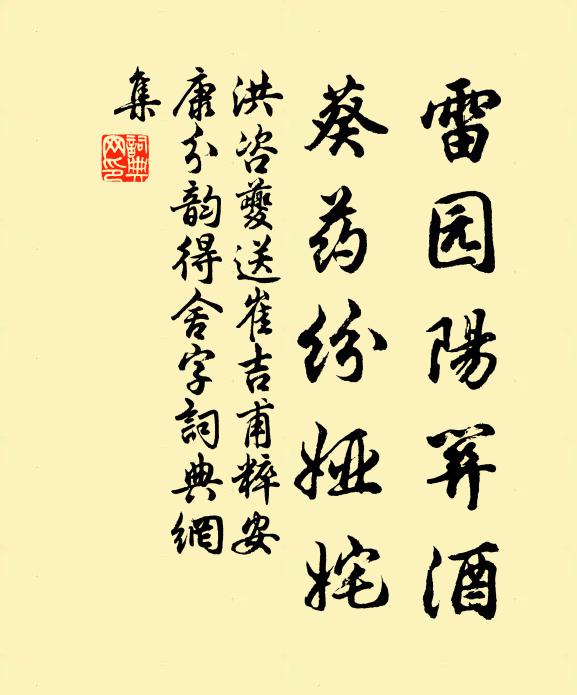 雷园陽羿酒
葵药纷娅姹
洪咨夔送崔吉甫粹安
康分韵得舍字詞典網
集
詞典網印